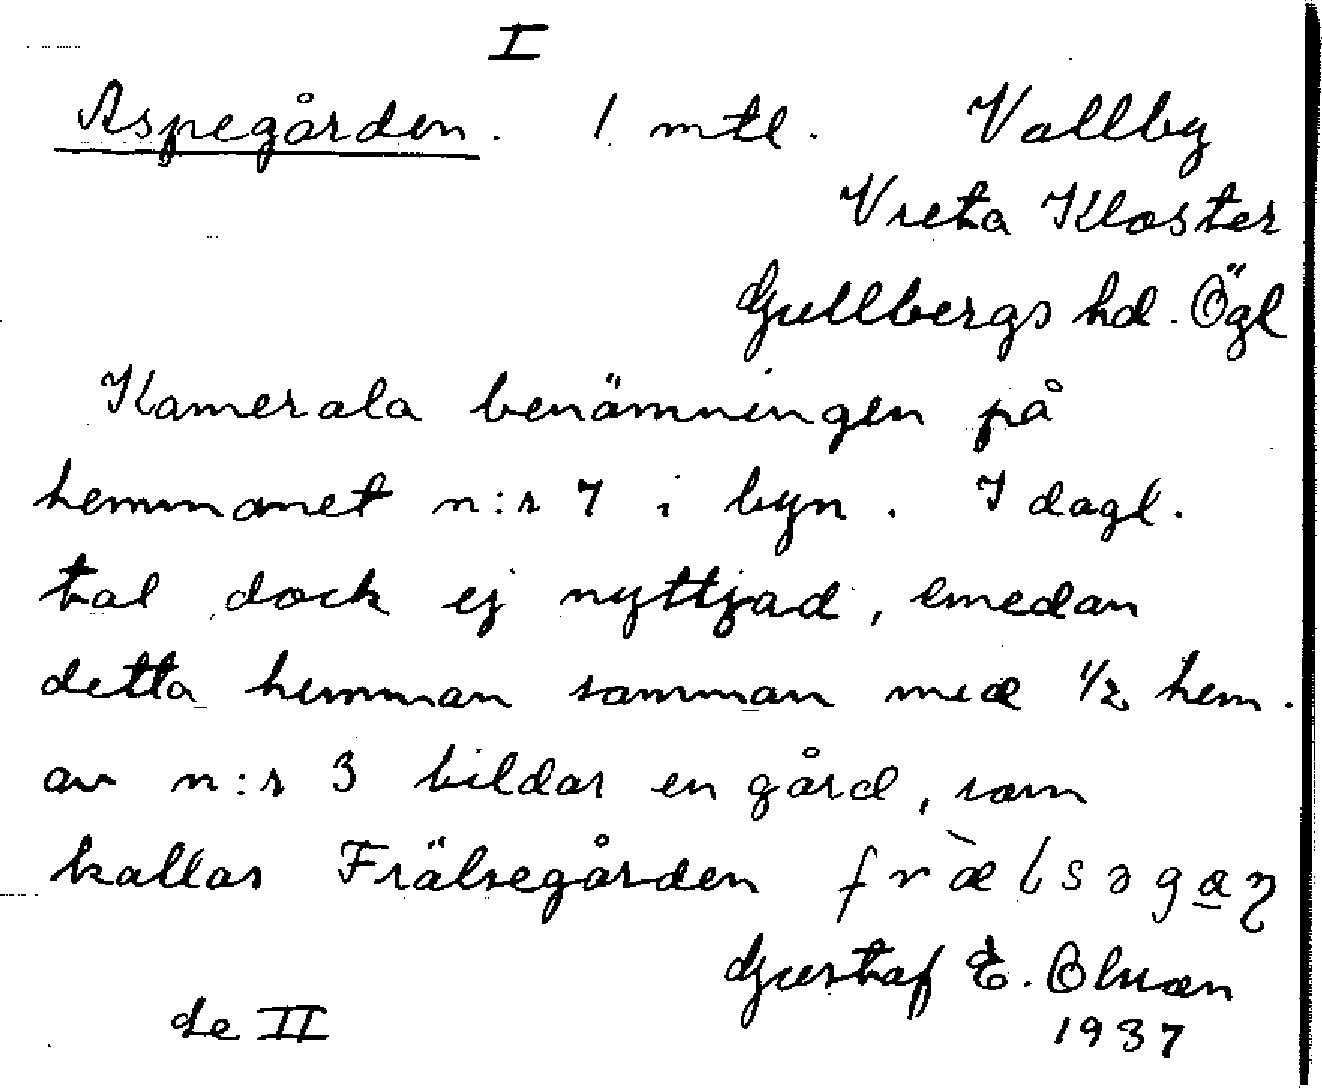 I
Aspegården. 1 mtl. Vallby
Vreta Kloster
Gullbergs hd. Ögl
Kamerala benämningen på
hemmanet n:r 7 i byn. I dagl.
tal dock ej nyttjad, emedan
detta hemman samman med 1/2 hem.
av n:r 3 bildar en gård, som
kallas Frälsegården
Gustaf E.
de II 1937